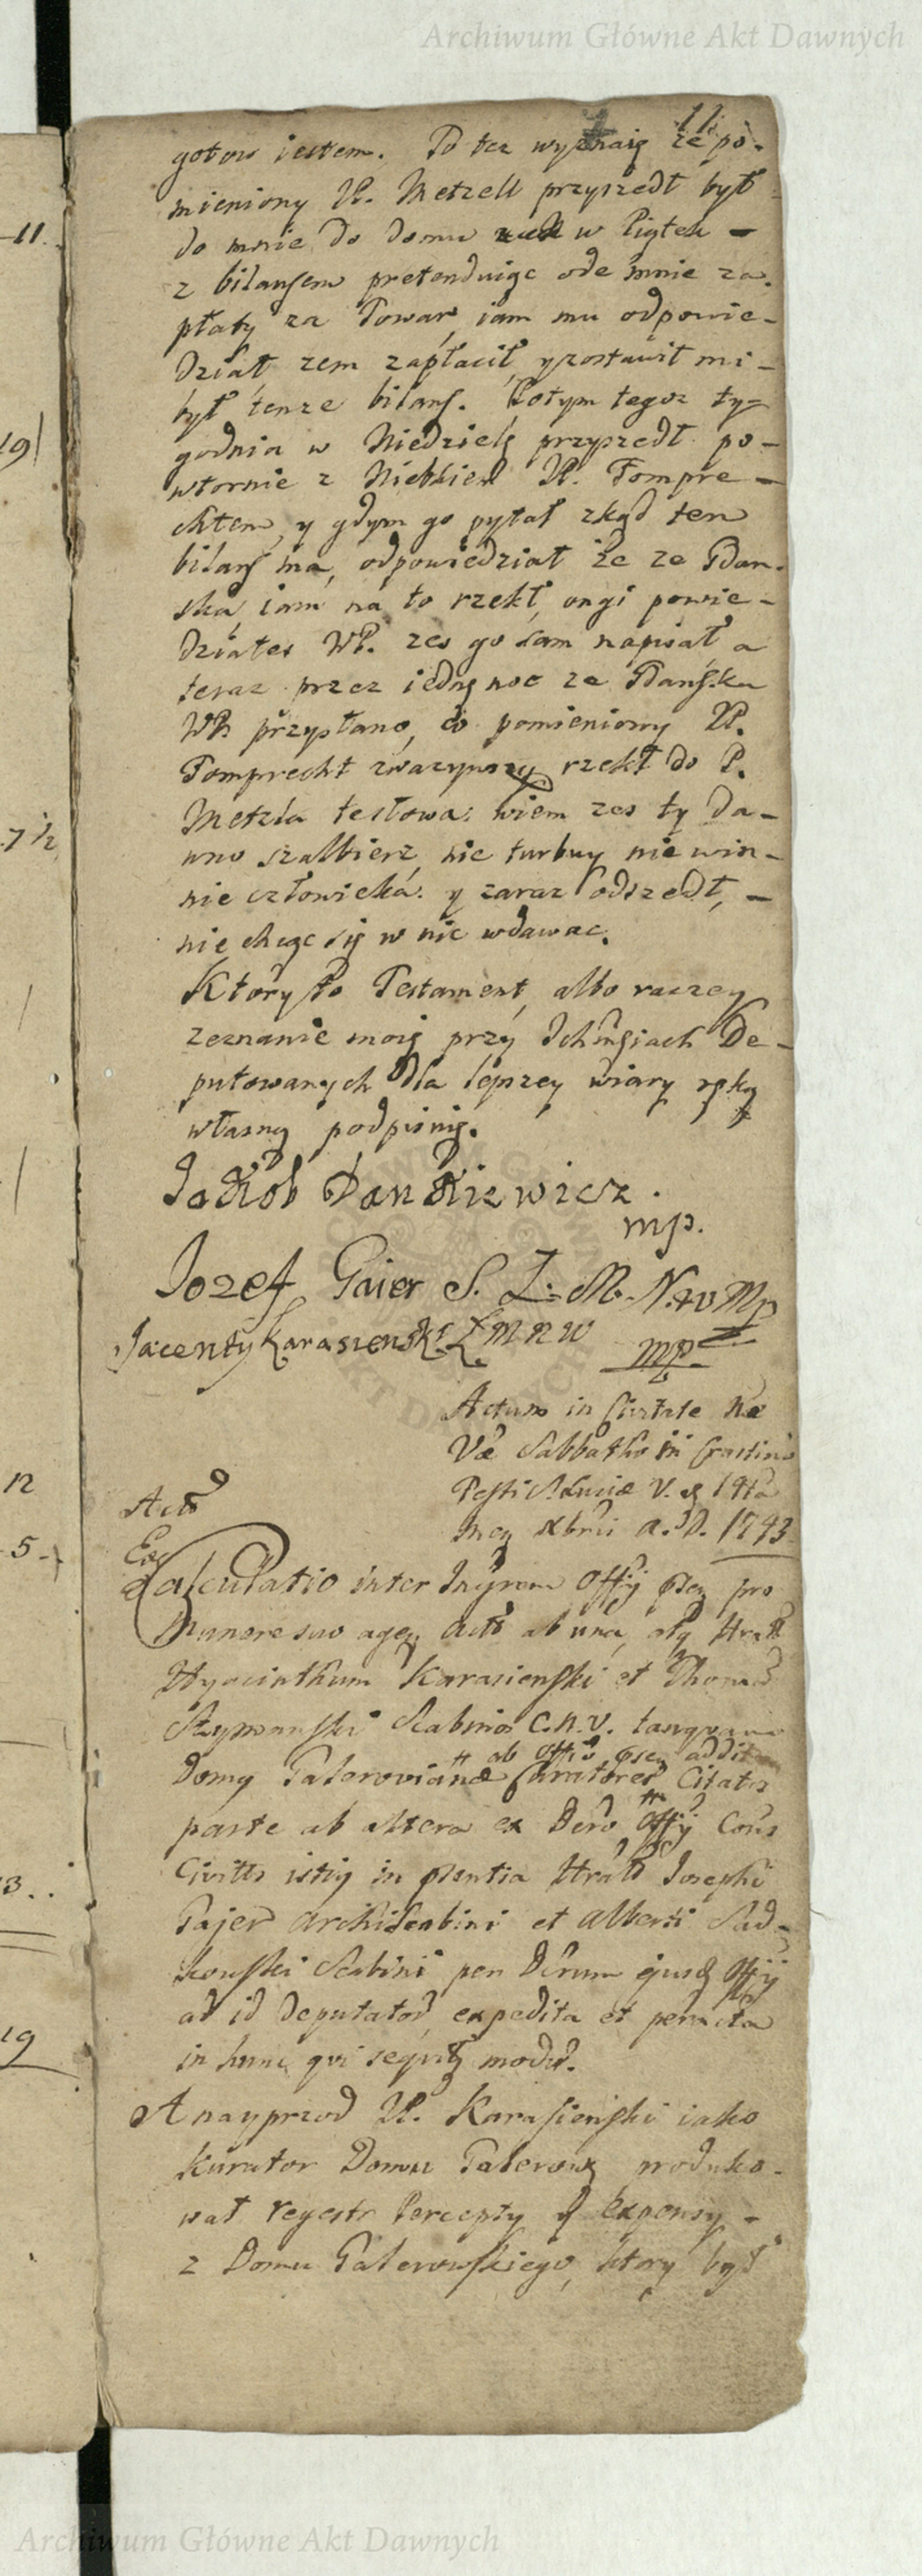 Archiwum Główne Akt Dawnych
11.
gotow iestem. To tez wyznaię że po-
mieniony JP. Metzell przyszedł był
do mnie do domu w Piątek -
z bilansem pretenduiąc ode mnie za-
płaty za Towar, iam mu odpowie-
dział zem zapłacił, y zostawił mi -
był tenze bilans. Potym tegoz ty-
godnia w Niedzielę przyszedł po-
wtornie z Niebkiem JP. Tompre-
chtem, y gdym go pytał zkąd ten
bilans ma, odpowiedział że ze Gdan-
ska, iam na to rzekł, ongi powie-
działes WP. zes go sam napisał a
teraz przez iednę noc ze Gdanska
WP. przysłano, co pomieniony JP.
Tomprecht zwazywszy rzekł do P.
Metzla te słowa: wiem zes ty da-
wno szalbierz, nie turbuy niewin-
nie człowieka: y zaraz odszedł, -
nie chcąc się w nic wdawac.
Ktory to Testament, albo raczey
zeznanie moię przy Ichmsciach De-
putowanych dla lepszey wiary ręką
własną podpisuię.
Jakob Dankiewicz.
mp.
Jozef Gaier S. Ł: M. N. w Mp
Jacenty Karasienski Ł M N W mp.
Actum in Civitate No
va Sabbatho in Crastino
Festi S. Luciæ V. et 14ta
mens. Xbris A. D. 1743
Actô
Ex
Calculatio inter Ingrem Offij pnseq pro
Munere suo agen. Actô ab una, atq Hrat
Hyacinthum Karasienski et Thomã
Szymanski Scabinos C. N. V. tanquam
ab Offiô pnseq addit
Domq Galerovianæ Curatores Citatos
parte ab altera ex Decrô Offij Cons
Civitts istiq in pnsentia Hratô Josephi
Gajer Archiscabini et Alberti Sad-
kowski Scabini per Decrum ejusq Offij
ad id Deputator, expedita et peracta
in hunc qui sequitq modũ.
A nayprzod JP. Karasienski iako
Kurator Domu Galerowę produko-
wał regestr Percepty y Expensy -
z Domu Galerowskiego, ktory był
11.
19
7 1/2
12
5
3..
19
Archiwum Główne Akt Dawnych